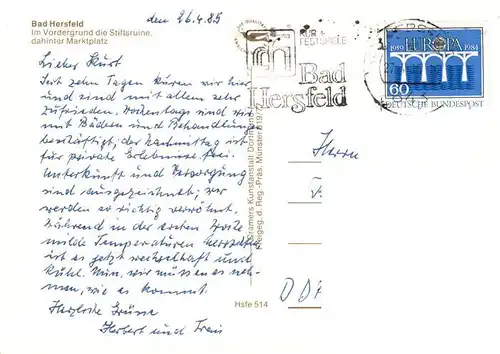 Bad Hersfeld
Im Vordergrund die Stiftsruine,
dahinter Marktplatz
den 26.4.85
Lieber Kurt
Seit zehn Tagen kuren wir hier
und sind mit allem sehr
zufrieden. Wochentags sind wir
mit Bädern und Behandlung
beschäftigt, der Nachmittag ist
für private Erlebnisse frei.
Unterkunft und Versorgung
sind ausgezeichnet; wir
werden so richtig verwöhnt.
Während in der ersten Woche
milde Temperaturen
ist es jetzt wechselhaft und
kühl. Nun, wir müssen es neh-
men, wie es kommt.
Herzliche Grüsse
Herbert und
KUR +
FESTSPIELE
Bad
Hersfeld
1959 EUROPA 1984
60
DEUTSCHE BUNDESPOST
Cramers Kunstanstalt Dortmund
Freigeg. d. Reg.-Präs. Münster
Herrn
DDR
Hsfe 514